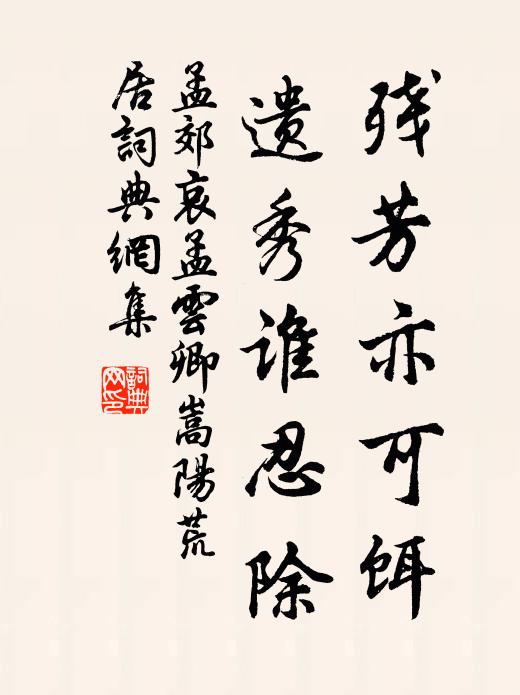 残芳亦可餌
遺秀誰忍除
孟郊哀孟雲卿嵩陽荒
居詞典網集
詞典
网印